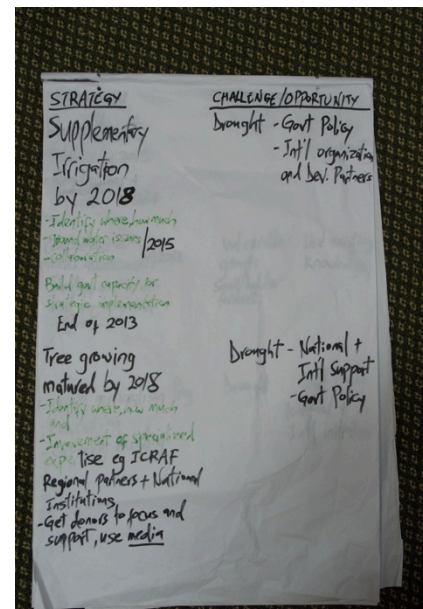 STRATEGY
Supplementary
Irrigation
by 2018
-Identify where, how much
- water issues /2015
-collaboration
Build govt capacity for
strategic implementation
End of 2013
Tree growing
matured by 2018
-Identify where, how much
and
-Involvement of specialized
expertise eg ICRAF
Regional partners + National
Institutions
-Get donors to focus and
support, use media
CHALLENGE/OPPORTUNITY
Drought - Govt Policy
- Int'l organization
and Dev. Partners
Drought - National +
Int'l Support
- Govt Policy